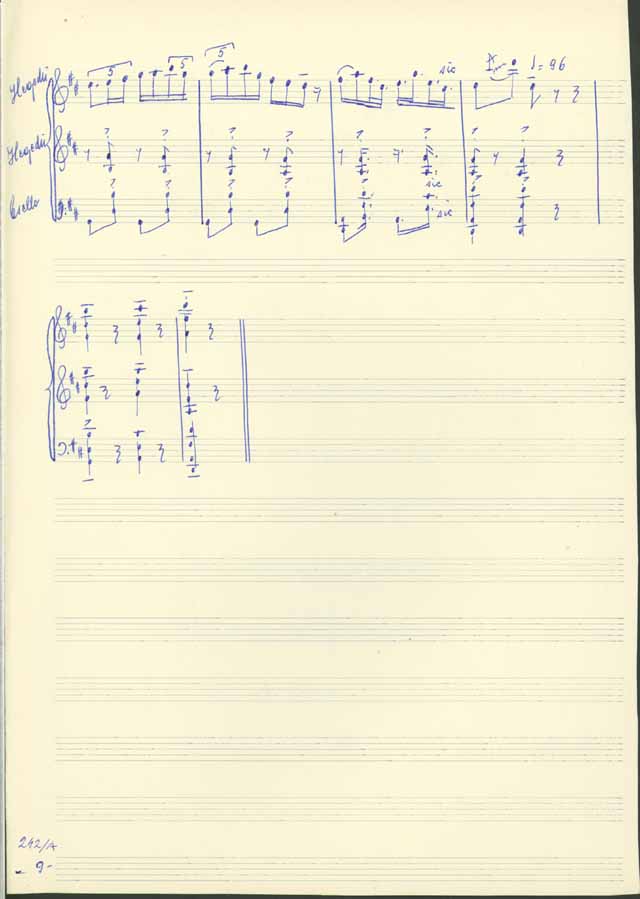 5 5 5 sic ♩= 96
Hegedű
Hegedű
sic
Cselló sic
242/A
- 9 -